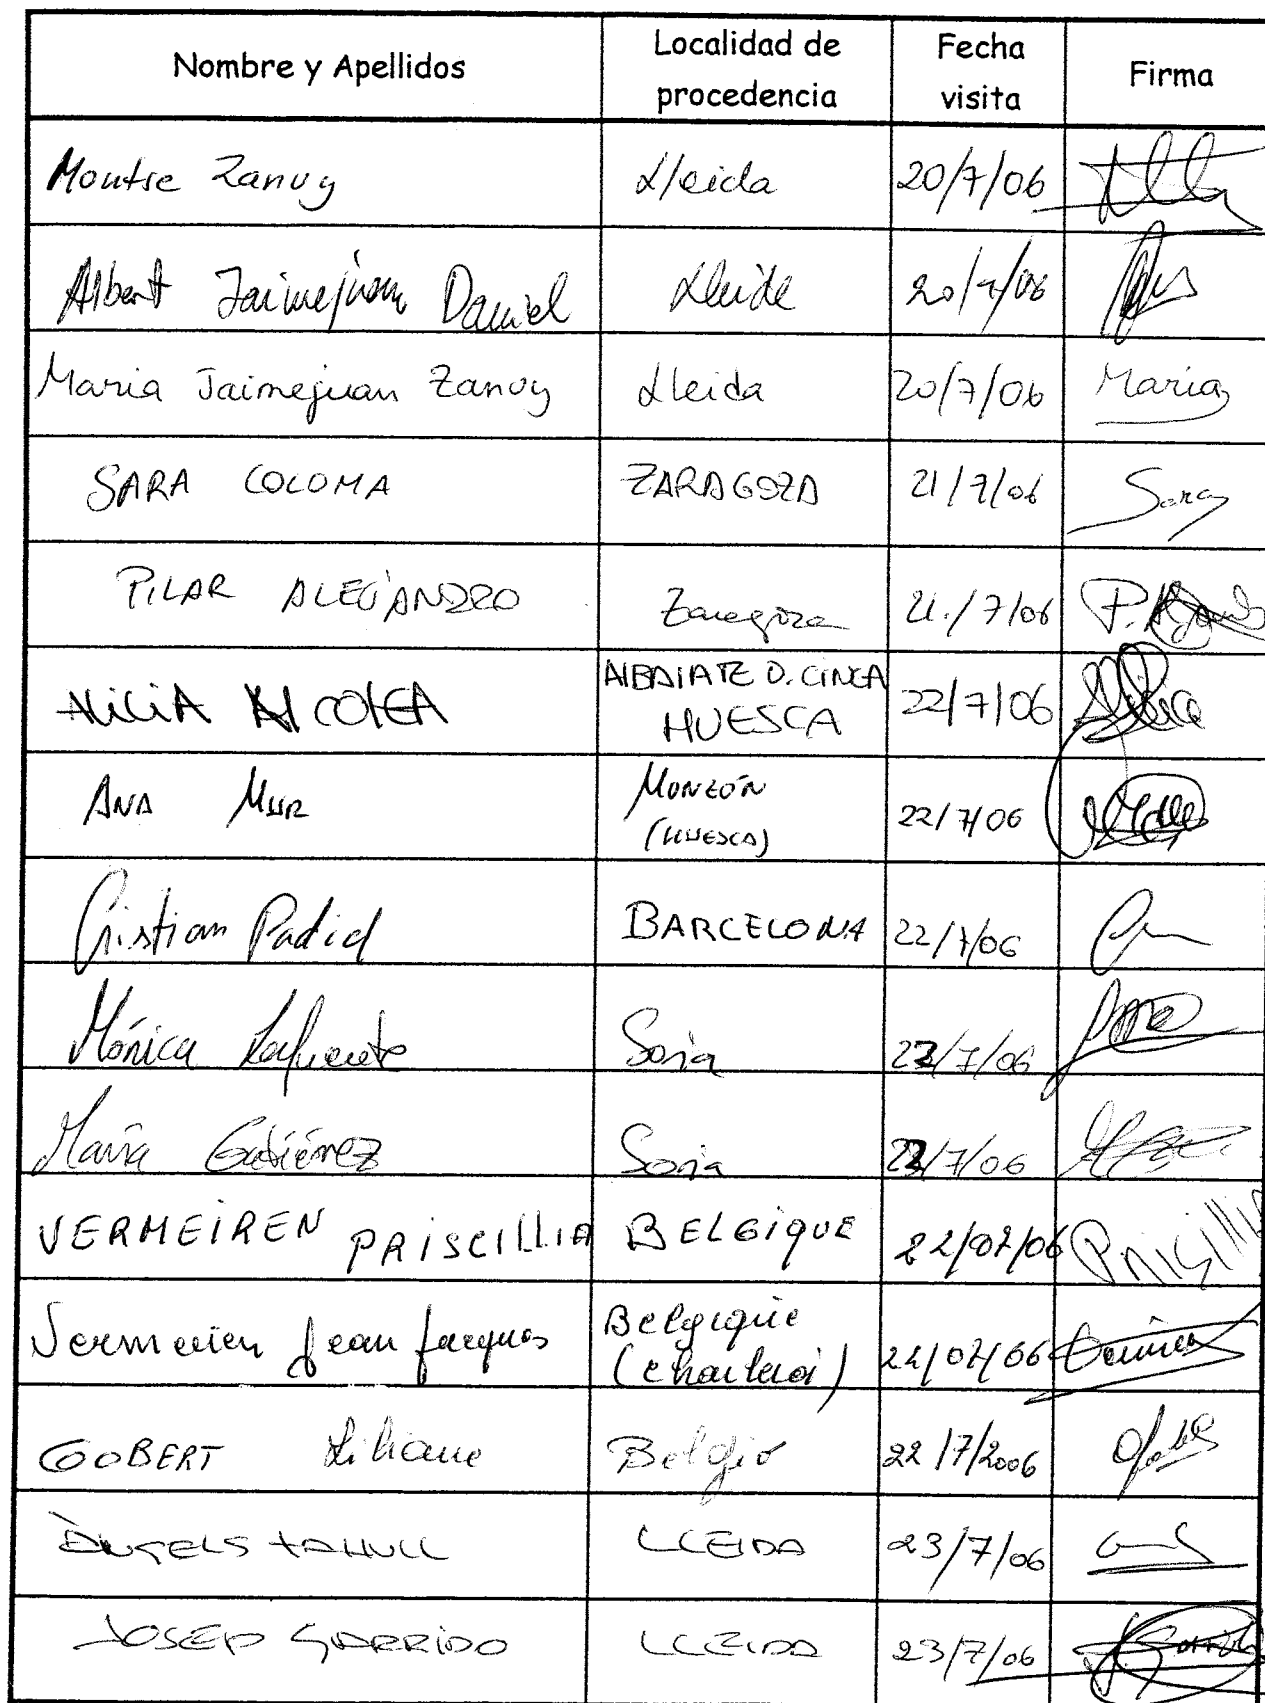 Nombre y Apellidos
Localidad de
procedencia
Fecha
visita
Firma
Montse Zanuy Lleida 20/7/06
Albert Jaimejuan Daniel Lleida 20/7/06
Maria Jaimejuan Zanuy Lleida 20/7/06 Maria
SARA COLOMA ZARAGOZA 21/7/06 Sara
PILAR ALEJANDRO Zaragoza 21/7/06
ALICIA ALCOLEA ALBALATE D. CINCA
HUESCA 22/7/06
ANA MUR MONZÓN
(HUESCA) 22/7/06
Cristian Padial BARCELONA 22/7/06
Mónica Lafuente Soria 22/7/06
María Gutiérrez Soria 22/7/06
VERMEIREN PRISCILLIA BELGIQUE 22/07/06 PRISCILLIA
Vermeiren Jean Jacques Belgique
(Charleroi) 22/07/06
GOBERT Liliane Belgio 22/7/2006
ÀNGELS TAHULL LLEIDA 23/7/06
JOSEP GARRIDO LLEIDA 23/7/06